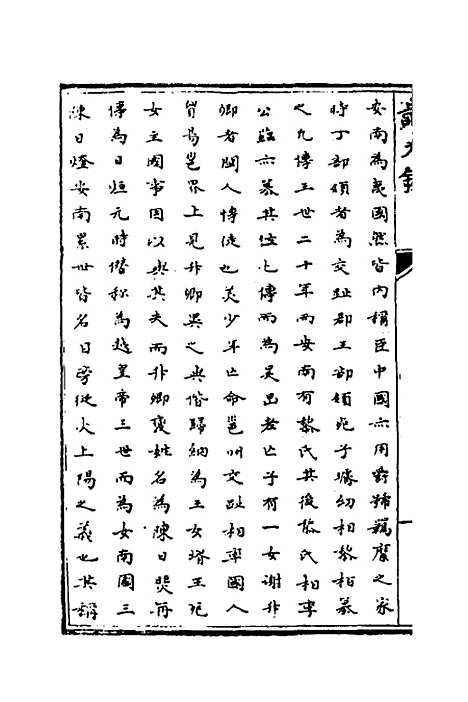 安南為夷國然皆內稱臣中國六用爵號羈縻之宋
時丁部領者為交趾郡王部領死子璿幼相黎相篡
之九傳王世二十年而安南有黎氏其後黎氏相李
公蘊六篡其位七傳而為昊旵老亡子有一女謝升
卿者閩人博徒也美少年亡命邕州交趾相率國人
貿易邕界上見升卿異之與偕歸納為王女壻王死
女主國事因以與其夫而升卿變姓名為陳日煚再
傳為日烜元時僭稱為越皇帝三世而為女南國三
陳日燈安南累世皆名日旁從火上陽之義也其稱